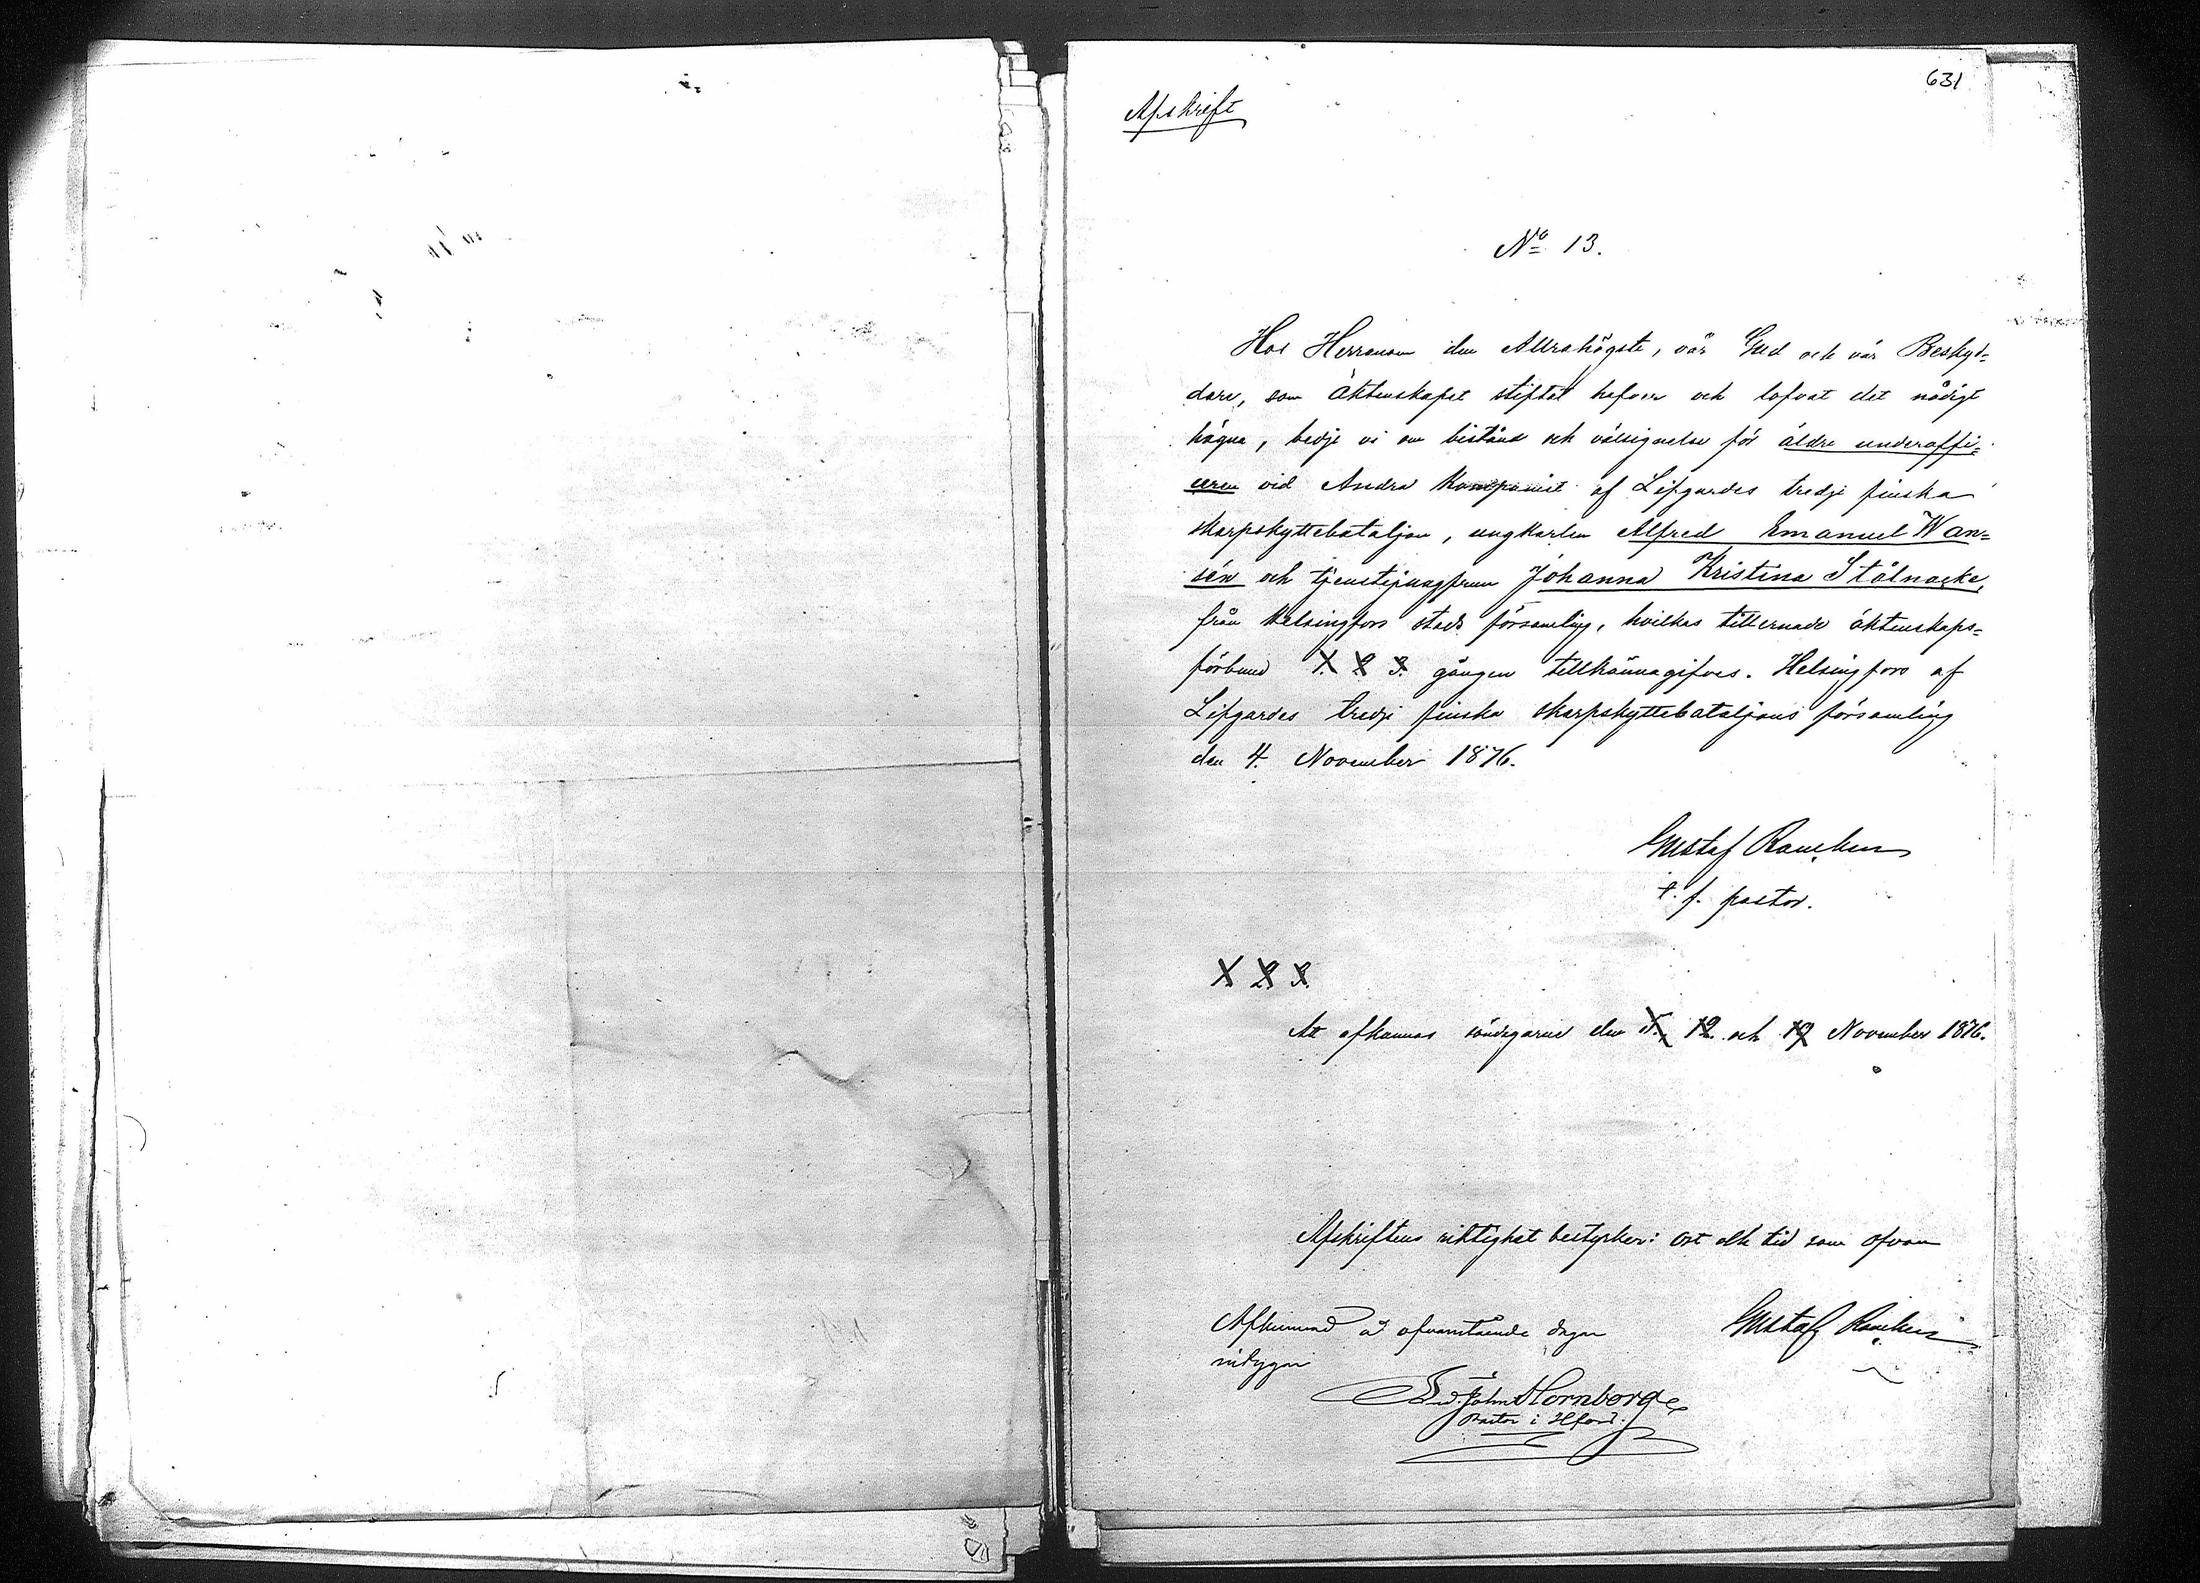 631
Afskrift
No 13.
Hos Herranom den Allrahögste, vår Gud och vår Beskyd=
dare, som äktenskapet stiftat hafver och lofvat det nådigt
hägna, bedje vi om bistånd och välsignelse för äldre underoffi=
ceren vid Andra Kompaniet af Lifgardes tredje finska
skarpskyttebataljon, ungkarlen Alfred Emanuel Wan=
sén och tjenstejungfrun Johanna Kristina Stålnacke,
från Helsingfors stads församling, hvilkas tillernade äktenskaps=
förbund 1. 2. 3. gången tillkännagifves. Helsingfors af
Lifgardes tredje finska skarpskyttebataljons församling
den 4. November 1876.
Gustaf
t. f. pastor.
1. 2. 3.
Att afkunnas söndagarne den 5., 12. och 19. November 1876.
Afskriftens riktighet bestyrker: ort och tid som ofvan
Gustaf
Afkunnad å ofvanstående dagar
intygar
John Hornborg
Pastor i Hfors.